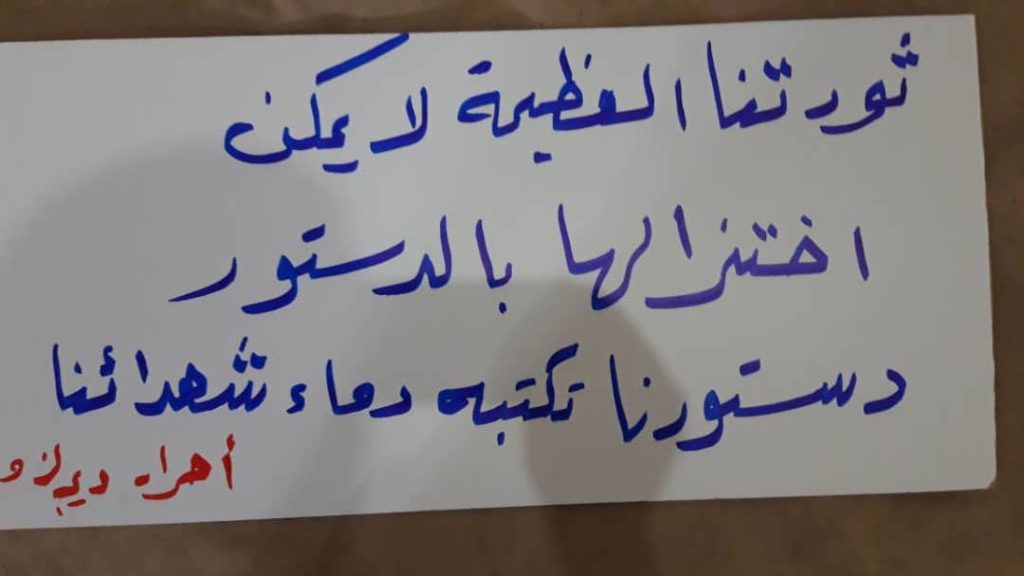 ثورتنا العظيمة لا يمكن
اختزالها بالدستور
دستورنا تكتبه دماء شهدائنا
أحرار ديرلزو